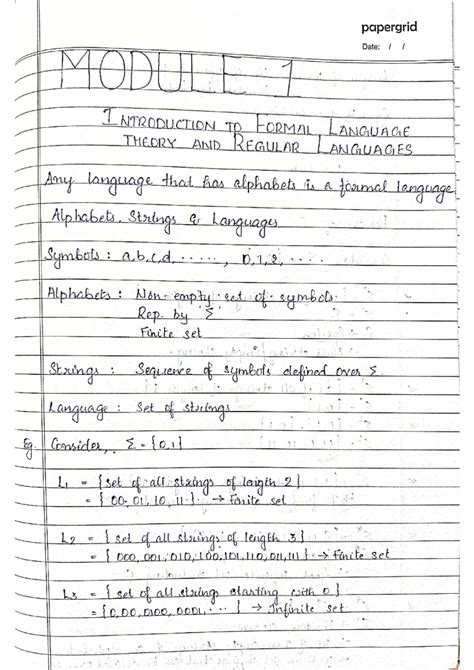 papergrid
Date: / /
MODULE 1
INTRODUCTION TO FORMAL LANGUAGE
THEORY AND REGULAR LANGUAGES
Any language that has alphabets is a formal language
Alphabets, Strings & Languages
Symbols : a,b,c,d, ....., 0,1,2, ....
Alphabets : Non-empty set of symbols
Rep. by Σ
Finite set
Strings : Sequence of symbols defined over Σ
Language : Set of strings
Eg. Consider, Σ = {0,1}
L₁ = {set of all strings of length 2}
= {00, 01, 10, 11} → Finite set
L₂ = {set of all strings of length 3}
= {000, 001, 010, 100, 101, 110, 011, 111} → Finite set
L₃ = {set of all strings starting with 0}
= {0, 00, 0100, 0001, ....} → Infinite set